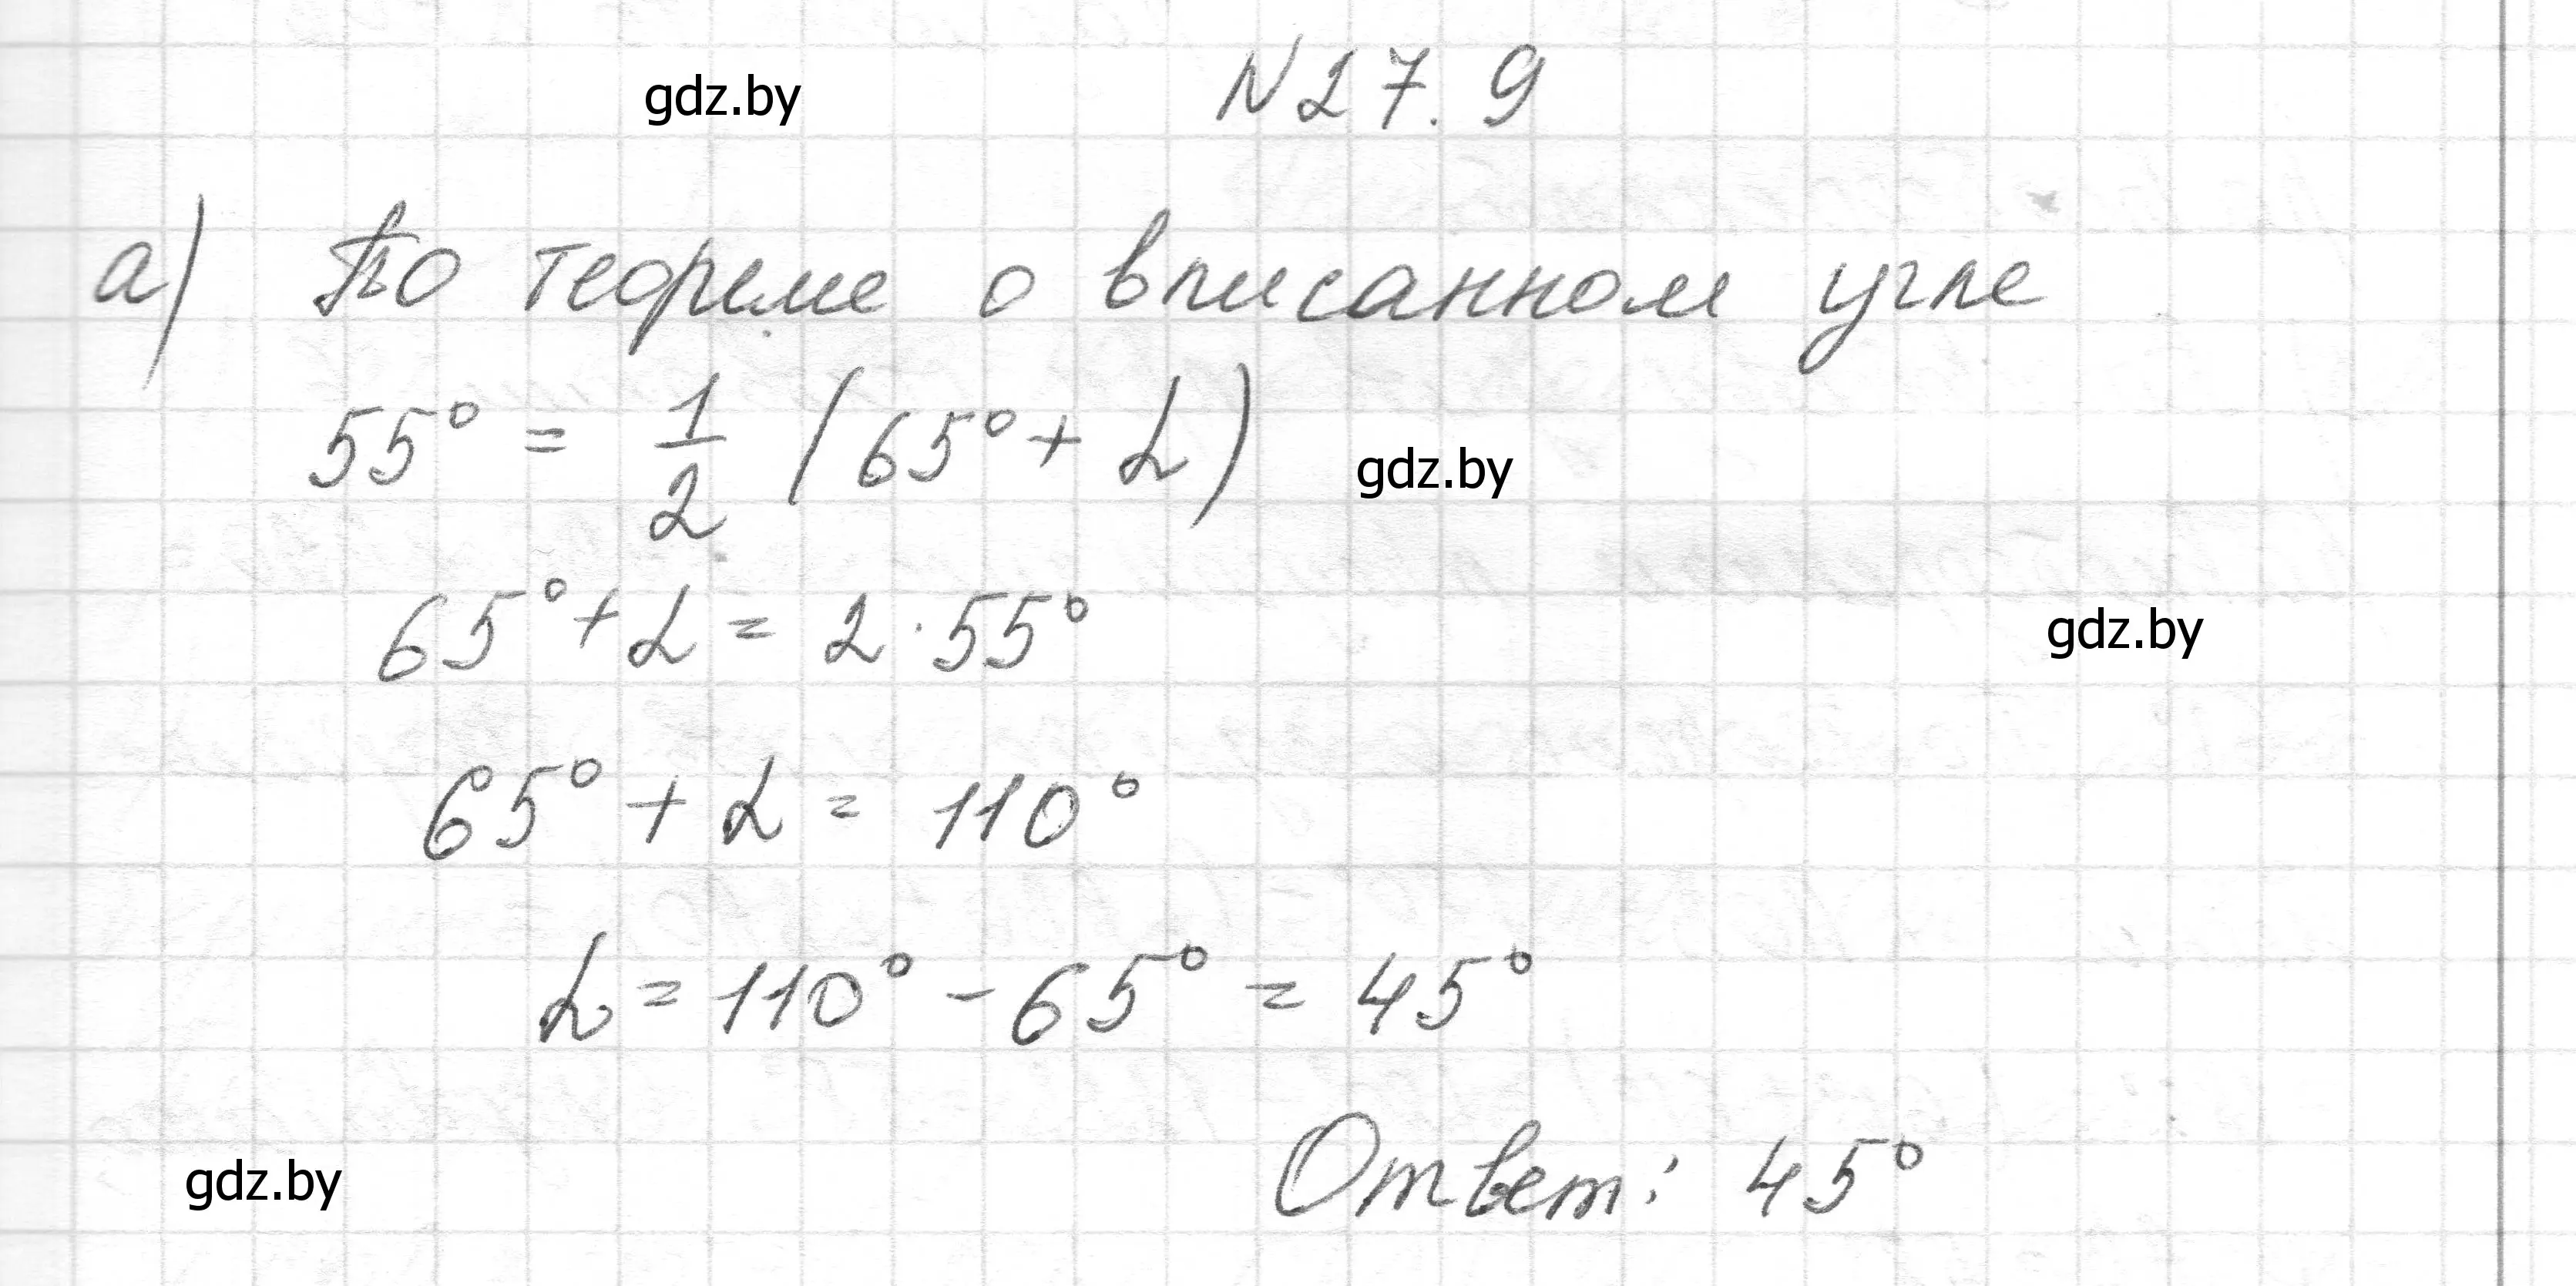 gdz.by
N27.9
а) По теореме о вписанном угле
55° = 1/2 (65° + α)
gdz.by
65° + α = 2 · 55°
gdz.by
65° + α = 110°
α = 110° - 65° = 45°
gdz.by
Ответ: 45°